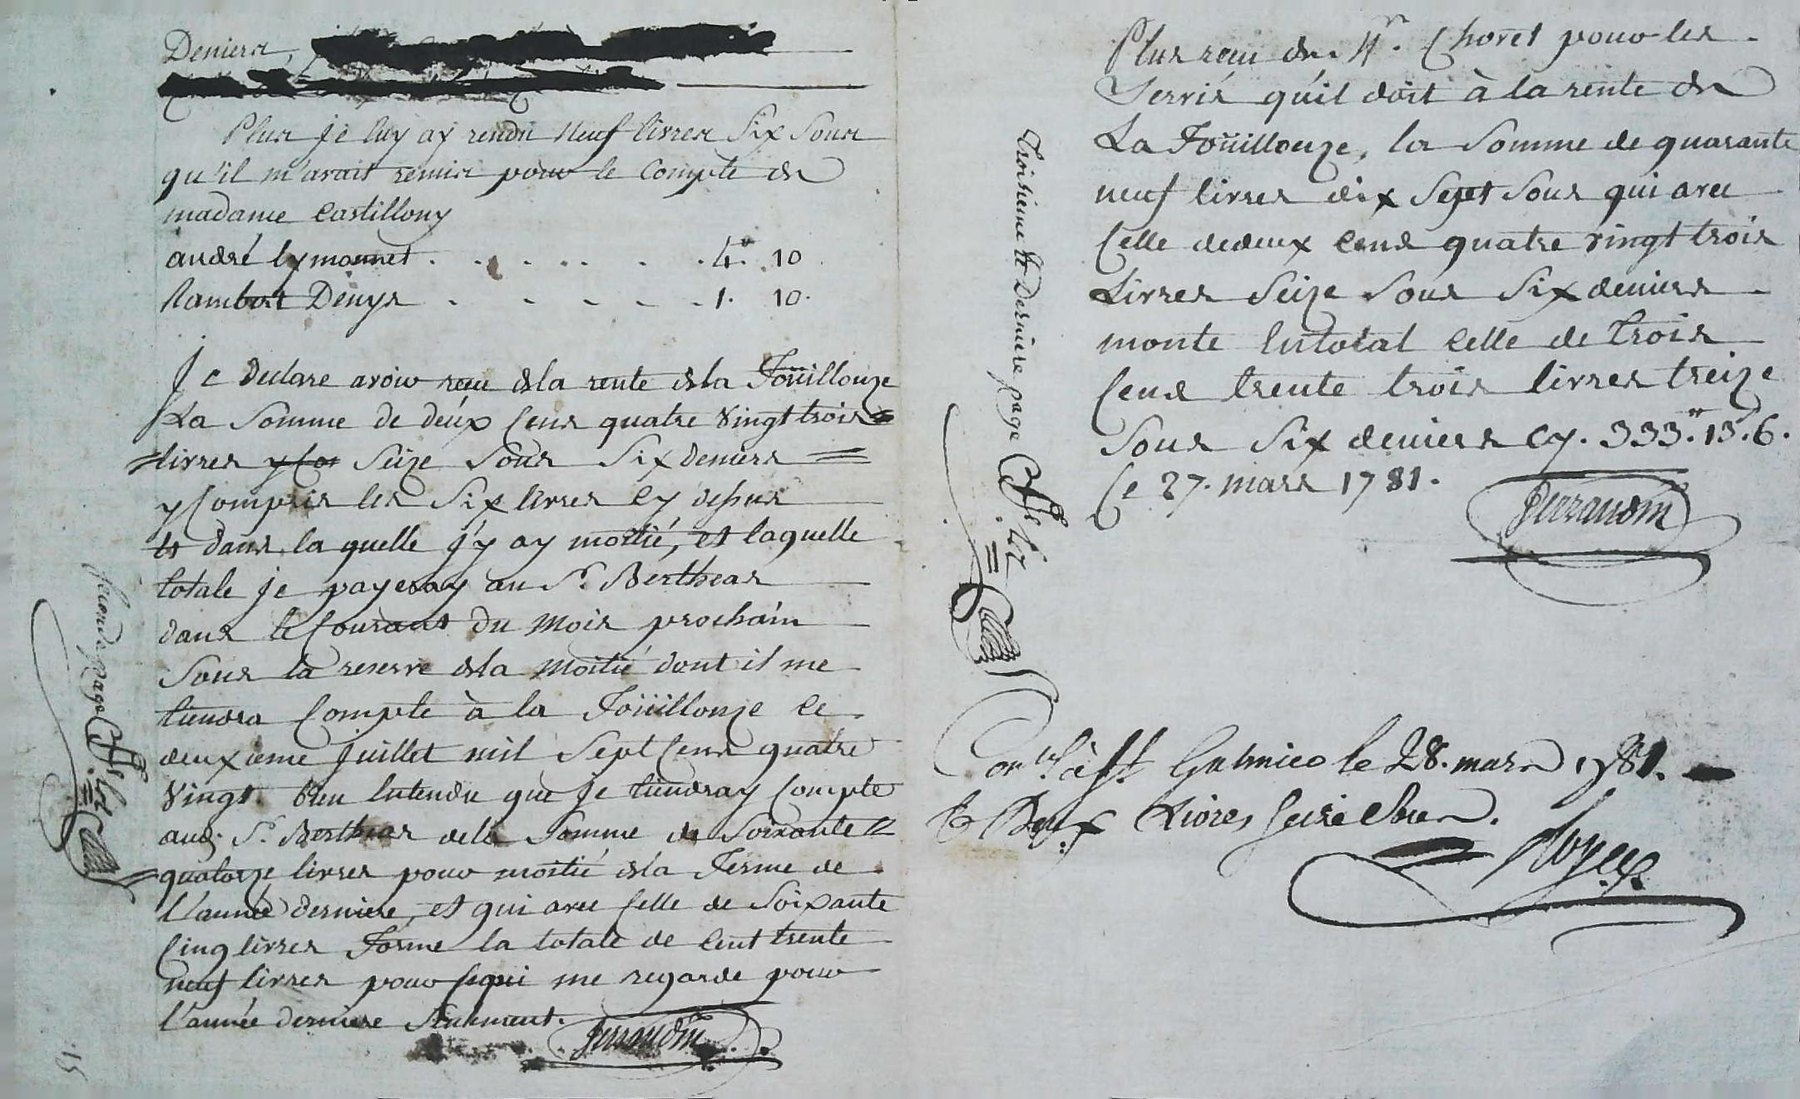 Deniers,
Plus je luy ay rendu neuf livres six sous
qu'il m'avait remis pour le compte de
madame Castillony
andré Eymonnet . . . . . . 4tt. 10
Rambert Denys . . . . . 1. 10.
Je declare avoir reçu de la rente de la Foüillouze
La Somme de deux Cens quatre vingt trois
livres y Com Seize Sous Six deniers
y Compris les Six livres Cy dessus
et dans la quelle j'y ay moitié, et laquelle
totale je payeray au Sr. Berthéas
dans le Courant du mois prochain
Sous la reserve de la moitié dont il me
tiendra Compte à la Foüillouze Ce
deuxieme Juillet mil Sept Cens quatre
vingt. bien Entendu que je tiendray Compte
aud. Sr. Berthéas de la Somme de Soixante
quatorze livres pour moitié de la Ferme de
l'année derniere, et qui avec Celle de Soixante
Cinq livres Forme la totale de Cent trente
neuf livres pour Ce qui me regarde pour
l'année derniere Seulement.
Ferrandin
seconde page
15
Plus reçu de Sr. Choret pour les
Servis qu'il doit à la rente de
La Foüillouze, la Somme de quarante
neuf livres dix Sept Sous qui avec
Celle de deux Cens quatre vingt trois
Livres Seize Sous Six deniers
monte En total Celle de trois
Cens trente trois livres treize
Sous Six deniers Cy. 333.tt 13.s 6.
Ce 27. mars 1781.
Ferrandin
Troisieme et Derniere page
Conlé à St. Galmier le 28. mars 1781.
R Deux Livres Seize Sous.